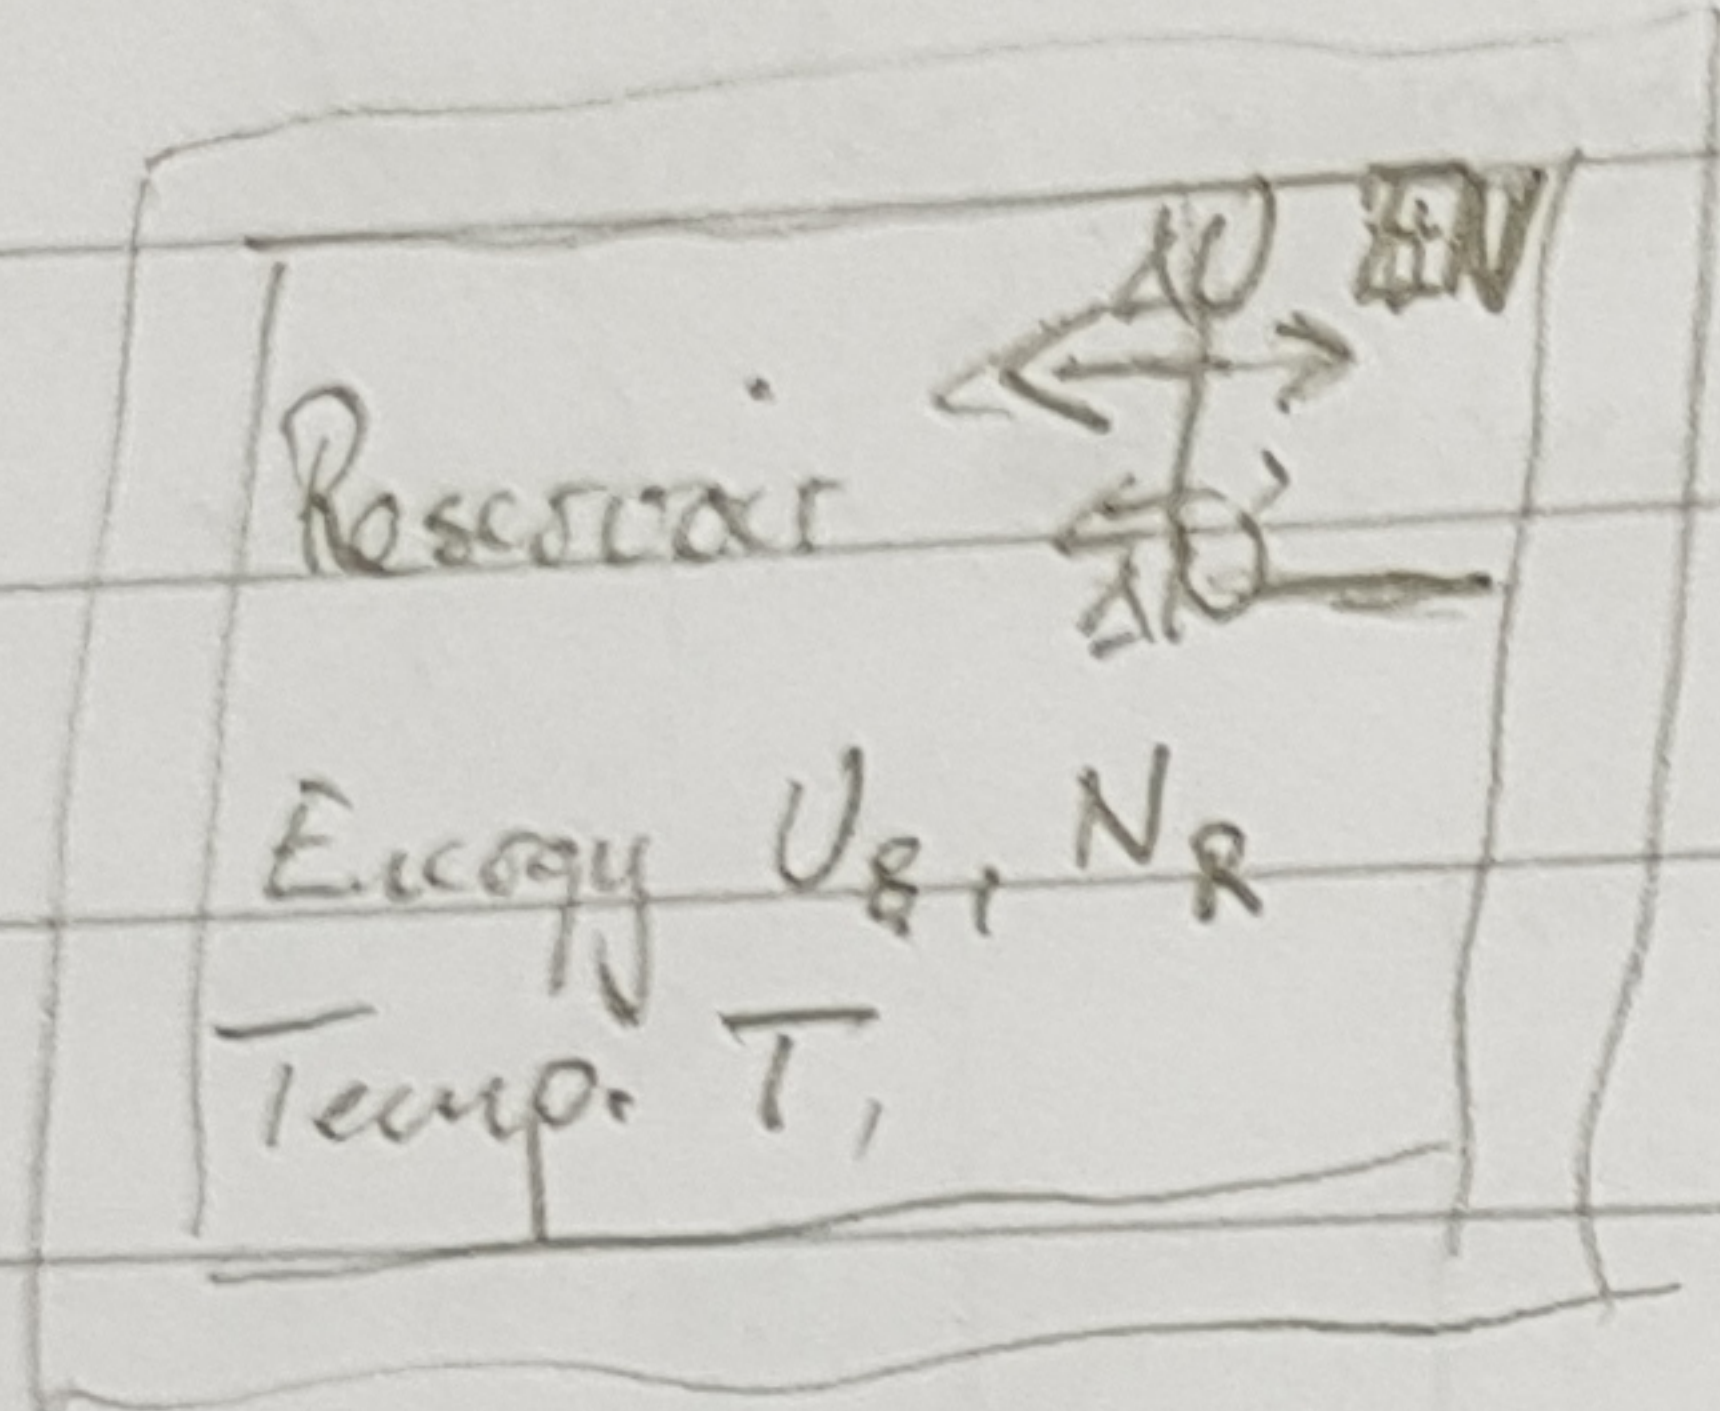 ΔU
Reservoir
ΔU
Energy U_R, N_R
Temp. T,